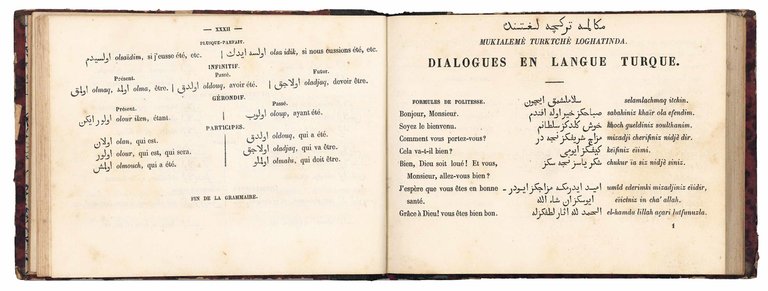 — XXXII —
PLUSQUE-PARFAIT.
اولسيدم olsaïdim, si j'eusse été, etc. | اولسه ايدك olsa idik, si nous eussions été, etc.
INFINITIF.
Présent. Passé. Futur.
اولمق olmaq, اولمه olma, être. | اولدق oldouq, avoir été. | اولاجق oladjaq, devoir être.
GÉRONDIF.
Présent. Passé.
اولور ايكن olour iken, étant. | اولوب oloup, ayant été.
PARTICIPES.
اولان olan, qui est. اولدق oldouq, qui a été.
اولور olour, qui est, qui sera. اولاجق oladjaq, qui va être.
اولمش olmouch, qui a été. اولملو olmalu, qui doit être.
FIN DE LA GRAMMAIRE.
مكالمه تركچه لغتنده
MUKIALEMÈ TURKTCHÈ LOGHATINDA.
DIALOGUES EN LANGUE TURQUE.
FORMULES DE POLITESSE. سلاملشمق ايچون selamlachmaq itchin.
Bonjour, Monsieur. صباحكز خير اوله افندم sabahiniz khaïr ola efendim.
Soyez le bienvenu. خوش كلدكز سلطانم khoch gueldiniz soulthanim.
Comment vous portez-vous? مزاج شريفكز نيجه در mizadji cherifiniz nidjè dir.
Cela va-t-il bien? كيفكز ايومى keïfiniz eïimi.
Bien, Dieu soit loué! Et vous, شكر ياسز نيجه سكز chukur ïa siz nidjè siniz.
Monsieur, allez-vous bien?
J'espère que vous êtes en bonne اميد ايدرمكه مزاجكز ايودر umid ederimki mizadjiniz eïidir,
santé. ايوسكز ان شاء الله eïictniz in cha' allah.
Grâce à Dieu! vous êtes bien bon. الحمد لله لطفكزله el-hamdu lillah açari lutfunuzla.
1